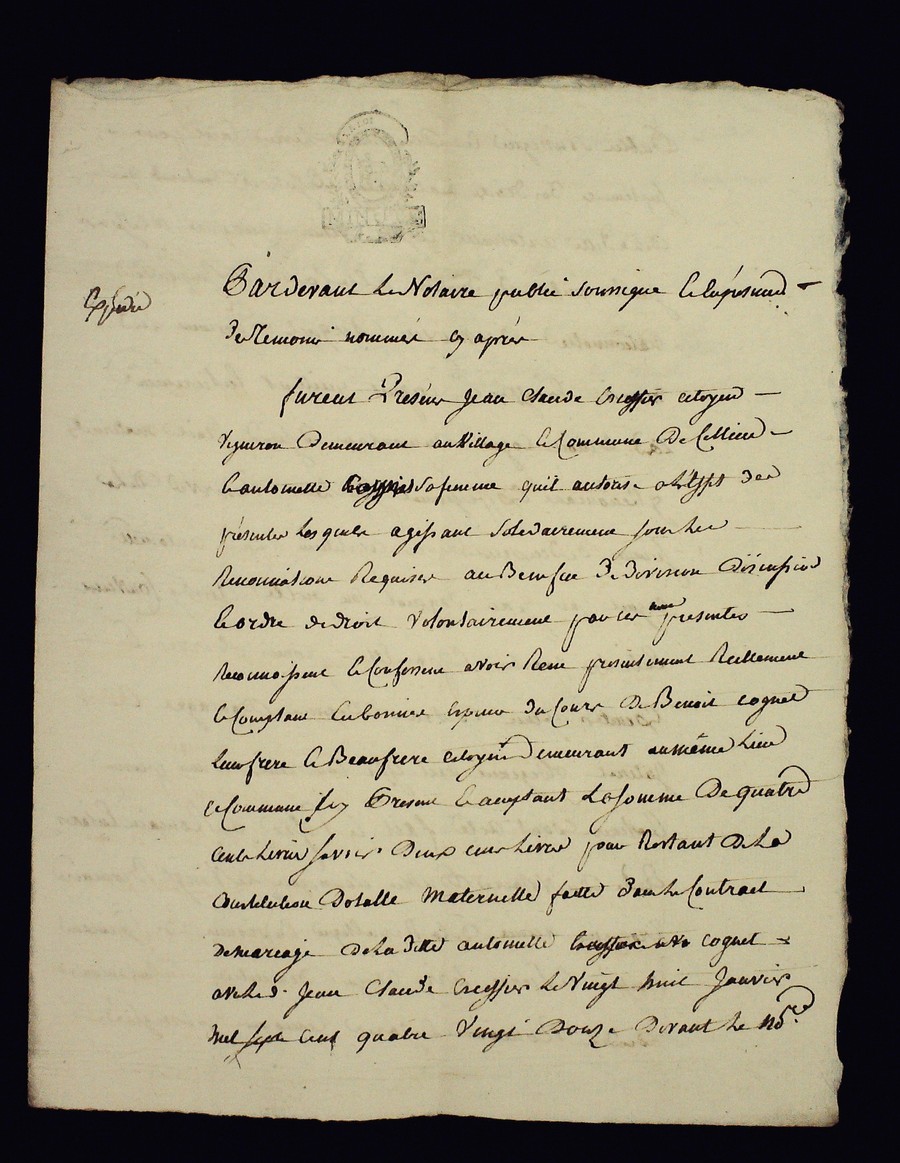 Expédié
Pardevant Le Notaire public Soussigné et En presence
de Temoins nommés cy après
furent Presens Jean Claude Creissier citoyen
vigneron Demeurant au Village et Commune De Cellieu
Et antoinette Sa femme qu'il autorise a L'effet des
présentes Lesquels agissant Solidairement sous Les
Renonciations Requises au Benefice De Division Discussion
Et ordre de droit volontairement par ces presentes
Reconnoissent Et Confessent avoir Recu presentement Reellement
Et Comptant En bonnes Especes du Cours De Benoit cognet
Leur frere Et Beaufrere citoyen Demeurant au même Lieu
et Commune Icy Present Et acceptant La Somme De quatre
Cents Livres Savoir Deux cens Livres pour Restant De La
Constitution Dotalle Maternelle faitte dans Le Contract
de mariage De La ditte antoinette cognet
avec Led. Jean Claude Creissier Le Vingt huit Janvier
Mil Sept Cent quatre Vingt Douze Devant Le no.re